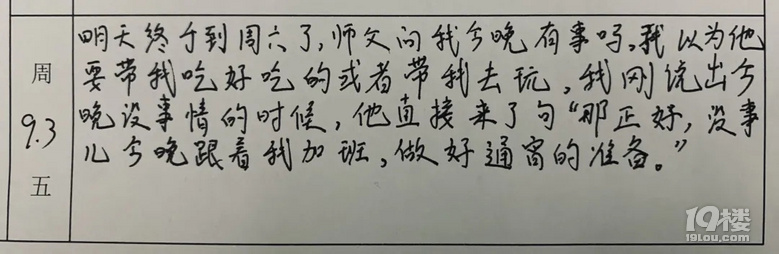 明天终于到周六了,师父问我今晚有事吗,我以为他
要带我吃好吃的或者带我去玩,我刚说出今
晚没事情的时候,他直接来了句“那正好,没事
儿今晚跟着我加班,做好通宵的准备。”
周
9.3
五
19楼
19lou.com